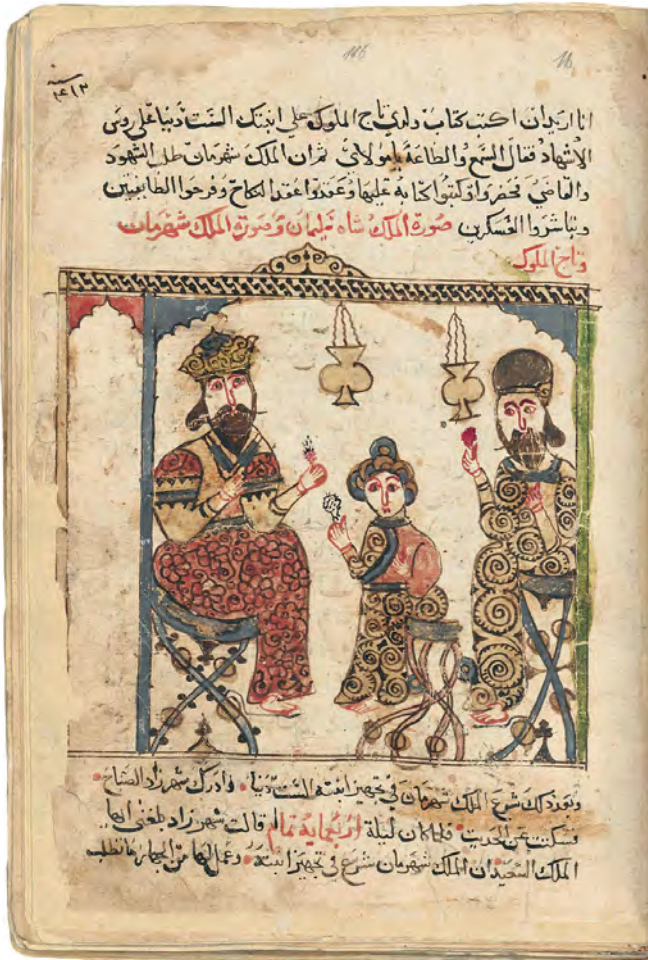 116 16
انا اريد ان اكتب كتاب ولدي تاج الملوك علي ابنتك الست دنيا علي روس
الاشهاد فقال السمع والطاعة يا مولاي ثم ان الملك شهرمان طلب الشهود
والقاضي فحضروا وكتبوا كتابه عليها وعقدوا عقد النكاح وفرحوا الطايفيين
وتباشروا العسكرين صورة الملك شاه سليمان وصورة الملك شهرمان
وتاج الملوك
وبعد ذلك شرع الملك شهرمان في تجهيز ابنته الست دنيا وادرك شهرزاد الصباح
فسكتت عن الحديث فلما كان ليلة اربعماية تمام قالت شهرزاد بلغني ايها
الملك السعيد ان الملك شهرمان شرع في تجهيز ابنته وعمل لها من الجهاز ما تطلبه